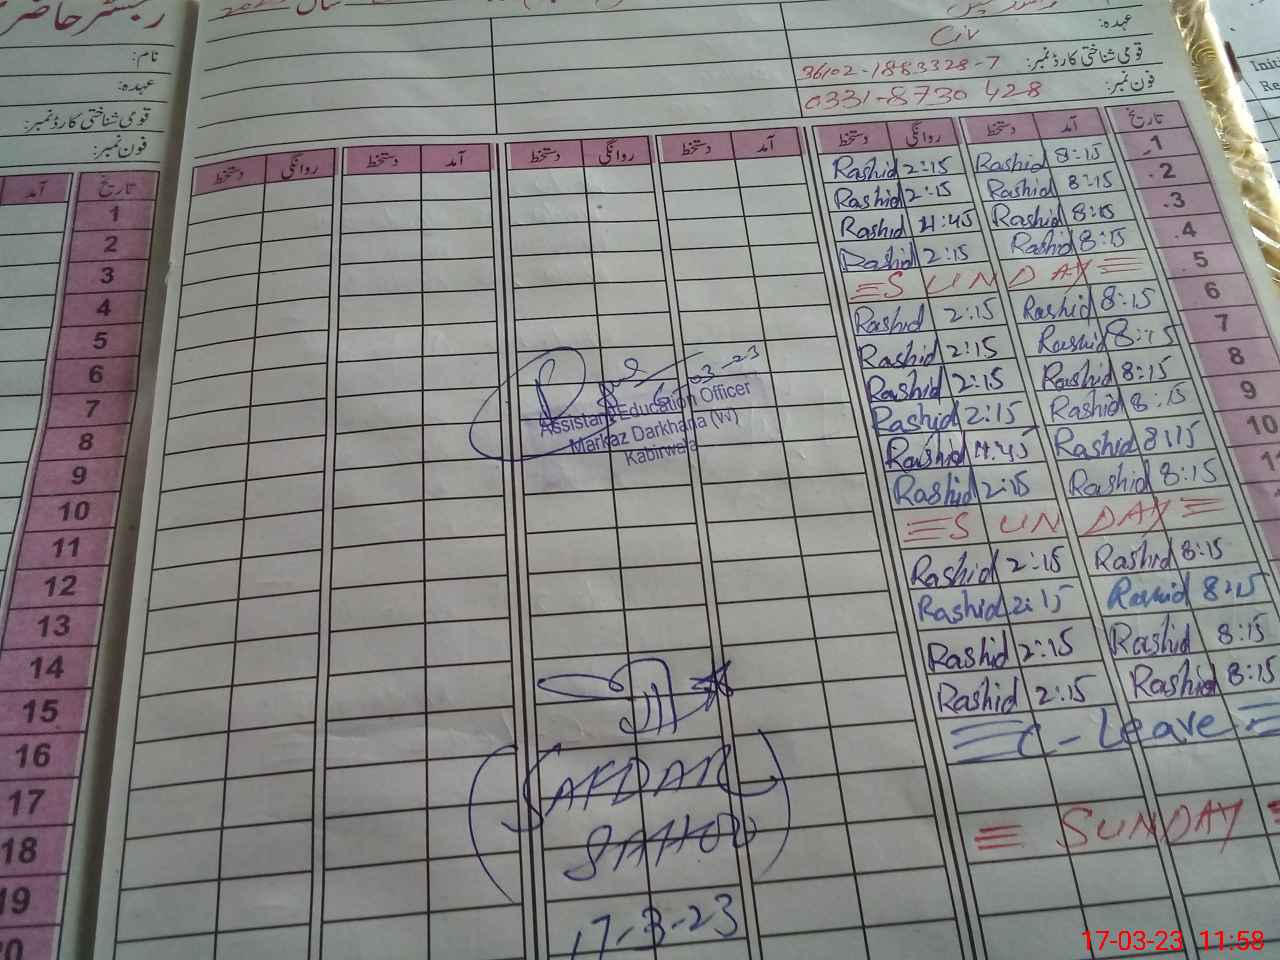 رجسٹر حاضر
نام:
عہدہ:
قومی شناختی کارڈ نمبر:
فون نمبر:
آمد تاریخ
1
2
3
4
5
6
7
8
9
10
11
12
13
14
15
16
17
18
19
20
سال
عہدہ: Civ
قومی شناختی کارڈ نمبر: 36102-1883328-7
فون نمبر: 0331-8730 428
تاریخ آمد دستخط روانگی دستخط آمد دستخط روانگی دستخط آمد دستخط روانگی دستخط
Rashid 2:15 Rashid 8:15 1
Rashid 2:15 Rashid 8:15 2
Rashid 4:45 Rashid 8:15 3
Rashid 2:15 Rashid 8:15 4
SUNDAY 5
Rashid 2:15 Rashid 8:15 6
Rashid 2:15 Rashid 8:15 7
Rashid 2:15 Rashid 8:15 8
Rashid 2:15 Rashid 8:15 9
Rashid 4:45 Rashid 8:15 10
Rashid 2:15 Rashid 8:15
SUNDAY
Rashid 2:15 Rashid 8:15
Rashid 2:15 Rashid 8:15
Rashid 2:15 Rashid 8:15
Rashid 2:15 Rashid 8:15
C-Leave
SUNDAY
03-23
Assistant Education Officer
Markaz Darkhana (W)
Kabirwala
(SAFDAR
SAHOO)
17-3-23
Initi
Re
17-03-23 11:58